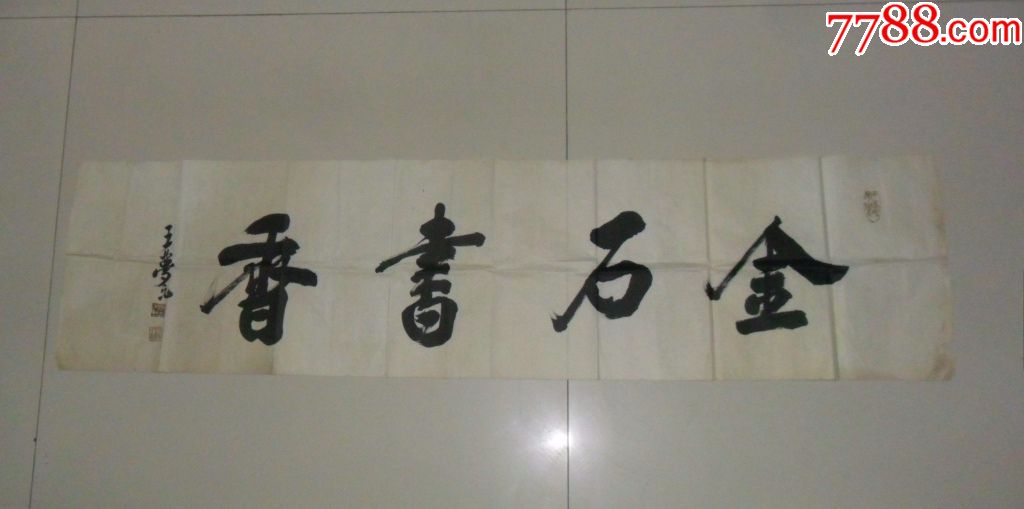 7788.com
金石書香